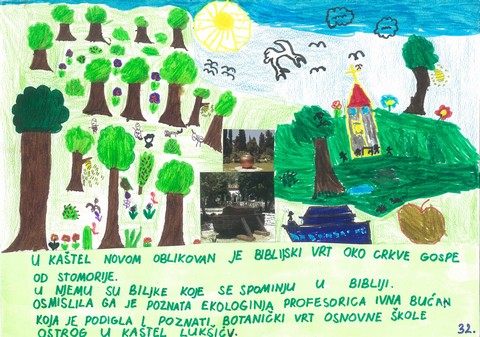 U KAŠTEL NOVOM OBLIKOVAN JE BIBLIJSKI VRT OKO CRKVE GOSPE
OD STOMORIJE.
U NJEMU SU BILJKE KOJE SE SPOMINJU U BIBLIJI.
OSMISLILA GA JE POZNATA EKOLOGINJA PROFESORICA IVNA BUĆAN
KOJA JE PODIGLA I POZNATI BOTANIČKI VRT OSNOVNE ŠKOLE
OSTROG U KAŠTEL LUKŠIĆU.
32.